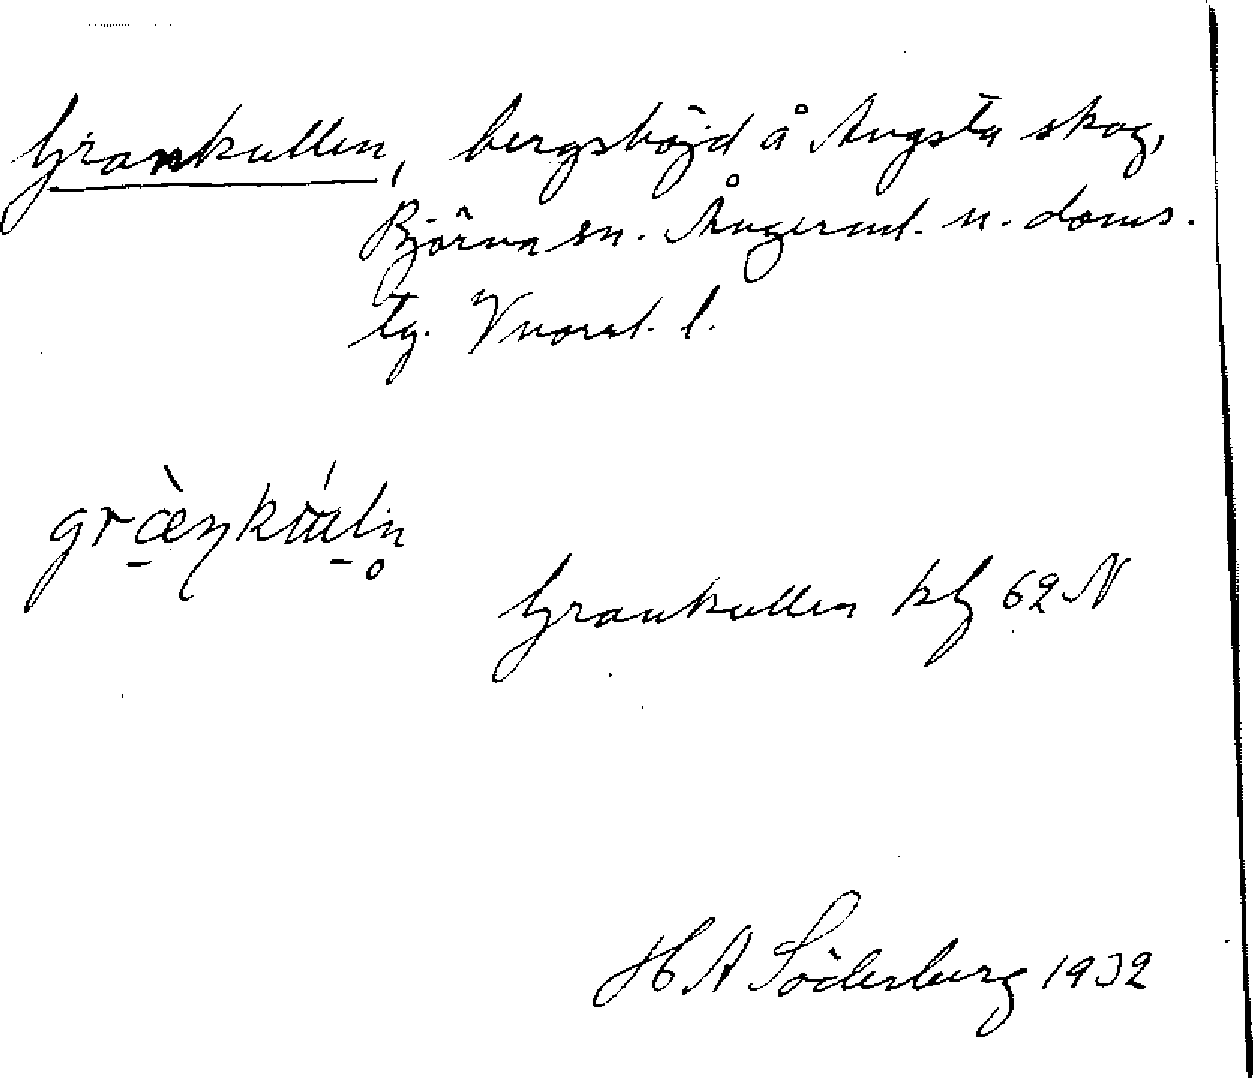 Grankullen, bergshöjd å Augsta skog,
Björna sn. Ångerml. n. doms.
tg. Vnorrl. l.
Grankullen kbl 62 N
H A Söderberg 1932